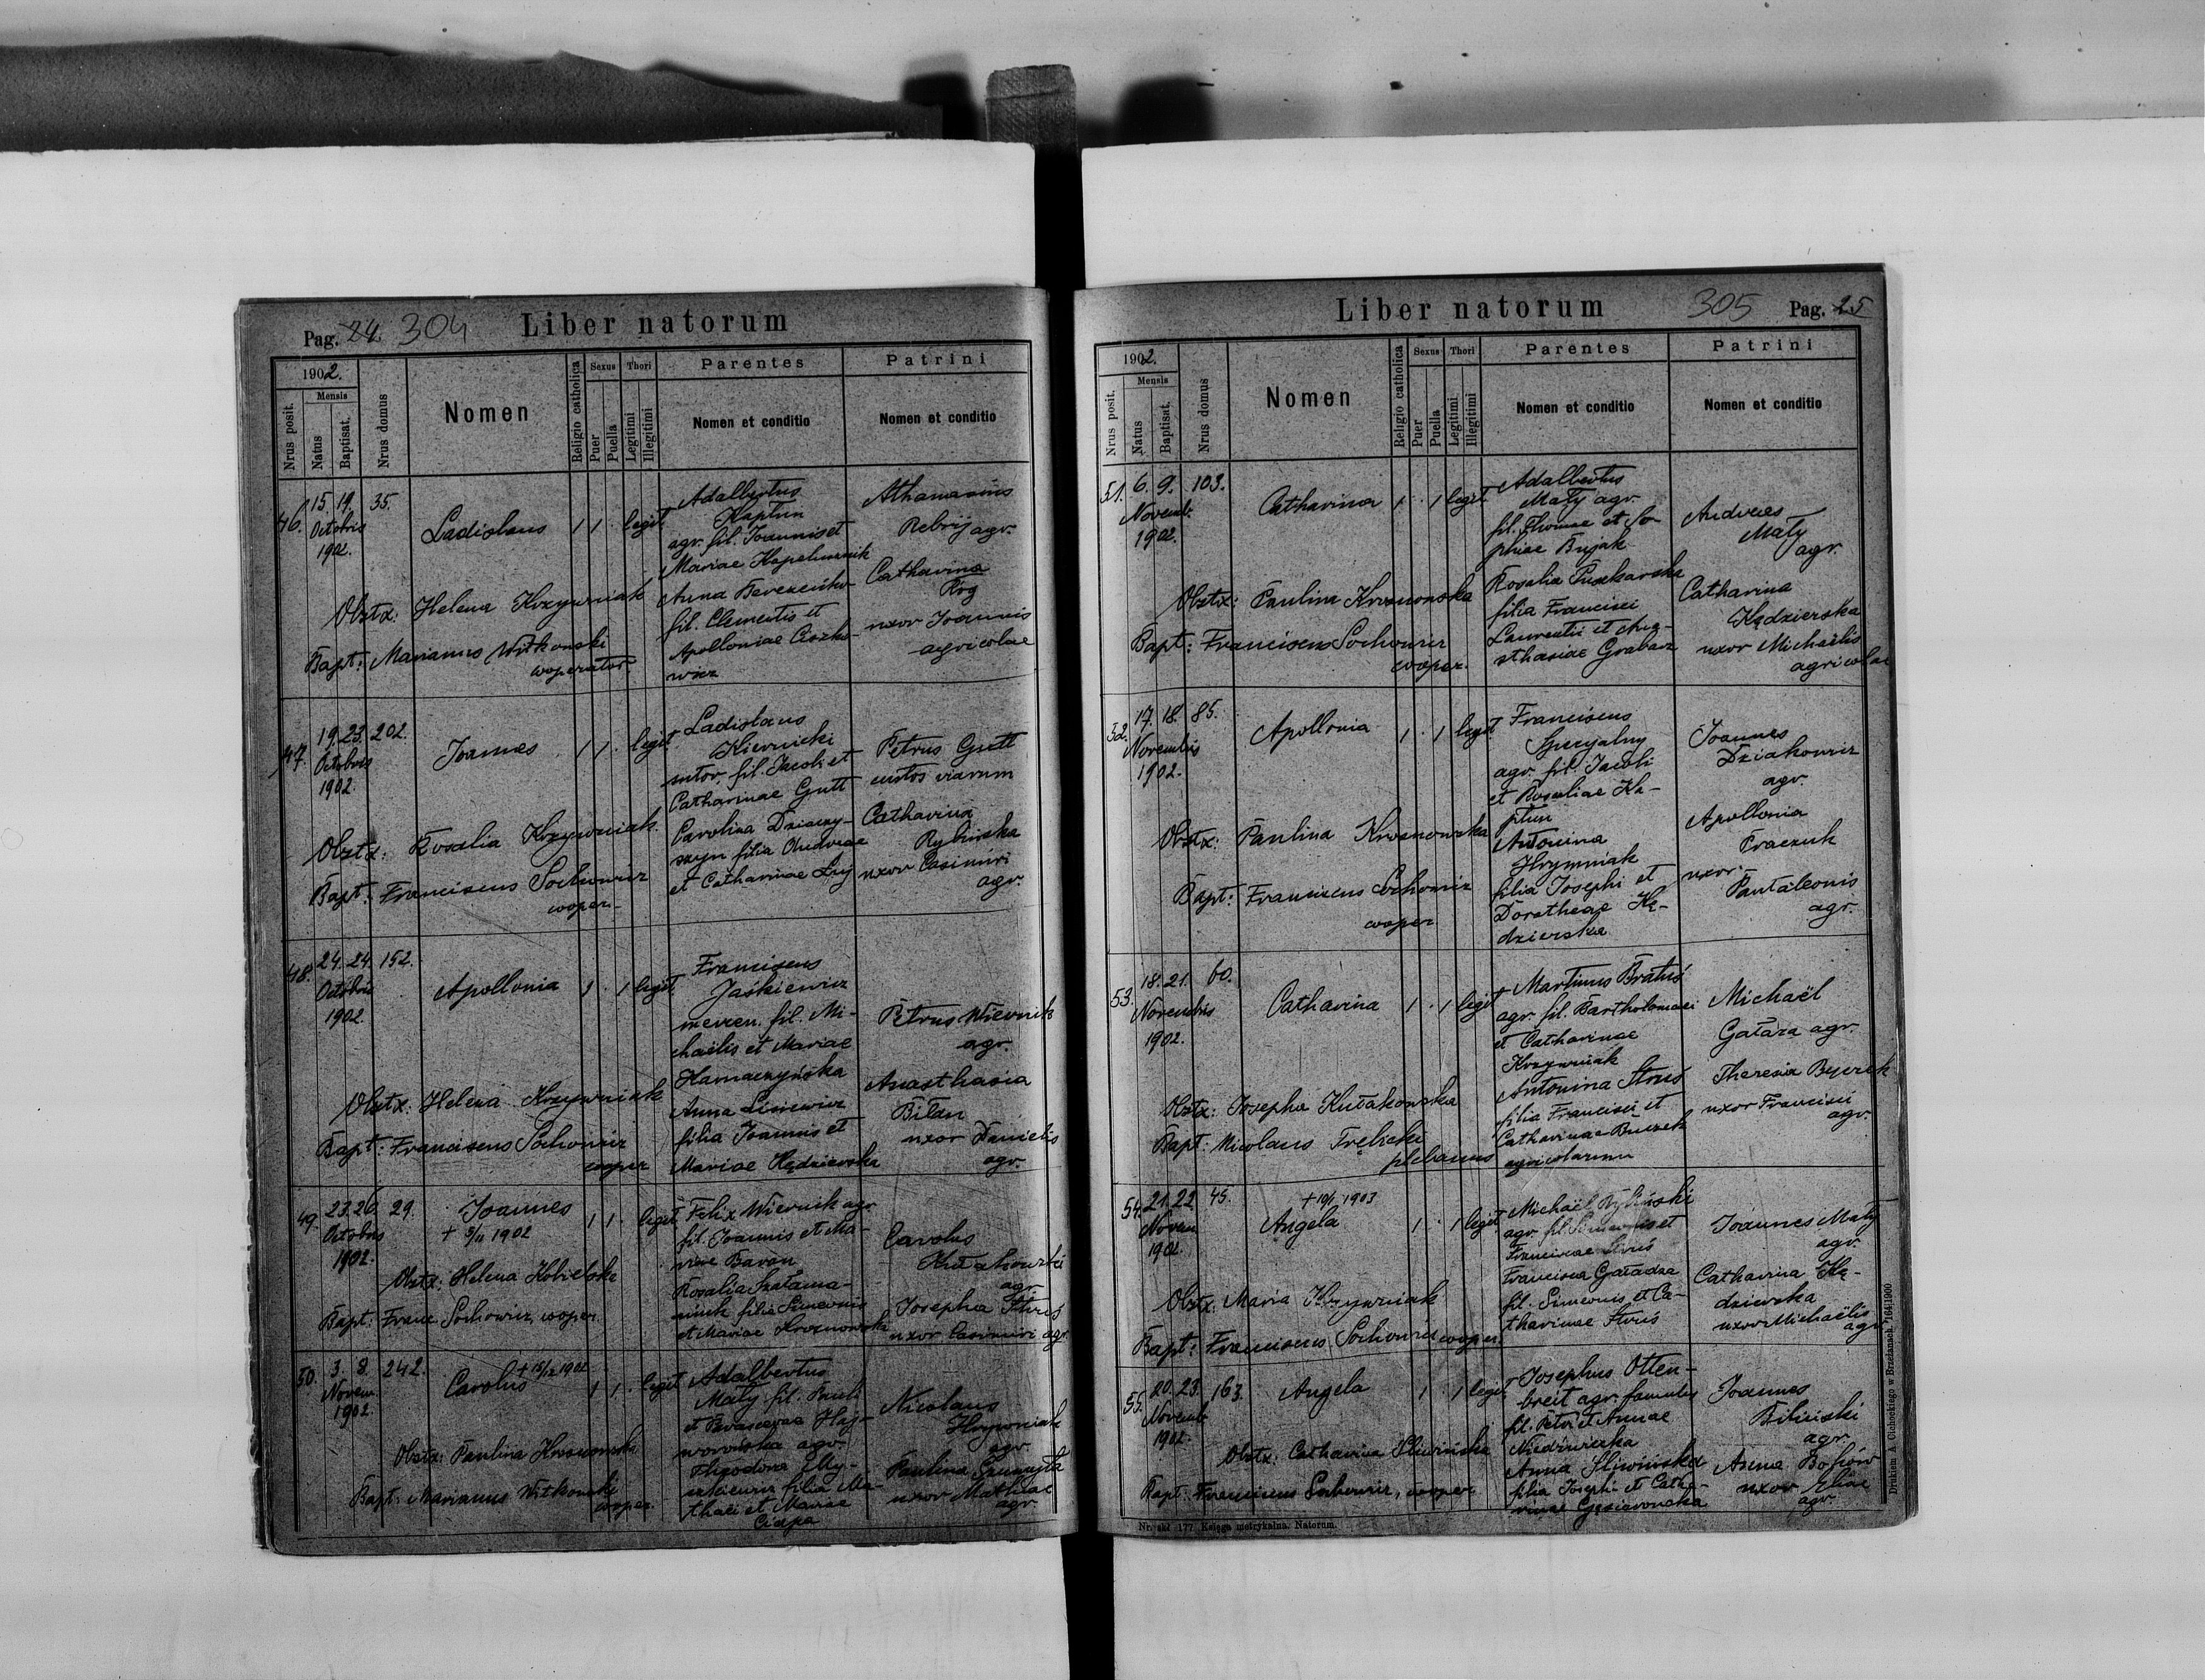 Pag. 24. 304 Liber natorum
1902.
Nrus posit.
Mensis
Natus
Baptisat.
Nrus domus
Nomen
Religio catholica
Sexus
Puer
Puella
Thori
Legitimi
Illegitimi
Parentes
Nomen et conditio
Patrini
Nomen et conditio
46. 15. 19. 35.
Octobris
1902.
Ladislaus 1 1 · legit.
Adalbertus
Kaptun
agr. fil. Joannis et
Mariae
Anna
fil. Clementis et
Apolloniae Ciszko-
wicz
Athanasius
Rebrij agr.
Catharina
Róg
uxor Joannis
agricolae
Obstx: Helena Krzywniak
Bapt: Marianus Witkowski
cooperator
47. 19. 23. 202.
Octobris
1902.
Joannes 1 1 · legit
Ladislaus
Kiernicki
sutor, fil. Jacobi et
Catharinae Gutt
Carolina
filia Andreae
et Catharinae
Petrus Gutt
custos viarum
Catharina
Rybińska
uxor Casimiri
agr.
Obstx: Rosalia Krzywniak
Bapt: Franciscus Sochowicz
cooper.
48. 24. 24. 152.
Octobris
1902.
Apollonia 1 · 1 legit.
Franciscus
Jaśkiewicz
mercen. fil. Mi-
chaëlis et Mariae
Harnaczyńska
Anna Lisiewicz
filia Joannis et
Mariae Kędzierska
Petrus Wiernik
agr.
Anasthasia
Biłan
uxor Danielis
agr.
Obstx: Helena Krzywniak
Bapt: Franciscus Sochowicz
cooper
49. 23. 26. 29.
Octobris
1902.
Joannes
+ 9/11 1902
1 1 · legit.
Felix Wiernik agr.
fil. Joannis et Ma-
riae Baran
Rosalia Szałama-
filia Simeonis
et Mariae Krosnowska
Carolus
Kułakowski
agr.
Josepha Struś
uxor Casimiri agr.
Obstx: Helena Kobielska
Bapt: Franc Sochowicz, cooper.
50. 3. 8. 242.
Novem.
1902.
Carolus + 15/12 1902
1 1 · legit
Adalbertus
Mały fil. Pauli
et Parascevae Haj-
woronska agr.
Theodora My-
filia Ma-
thaei et Mariae
Ciapa
Nicolaus
Hrywniak
agr.
Paulina
uxor Mathiae
agr.
Obstx: Paulina Krosnowska
Bapt: Marianus Witkowski
cooper.
Liber natorum 305 Pag. 25
1902.
Nrus posit.
Mensis
Natus
Baptisat.
Nrus domus
Nomen
Religio catholica
Sexus
Puer
Puella
Thori
Legitimi
Illegitimi
Parentes
Nomen et conditio
Patrini
Nomen et conditio
51. 6. 9. 103.
Novemb.
1902.
Catharina 1 · 1 legit
Adalbertus
Mały agr.
fil. Thomae et So-
phiae Bujak
Rosalia Puzkarska
filia Francisci
Laurentii et Ana-
sthasiae Grabarz
Andreas
Mały
agr.
Catharina
Kędzierska
uxor Michaëlis
agricolae
Obstx: Paulina Krosnowska
Bapt: Franciscus Sochowicz
cooper.
52. 17. 18. 85.
Novembris
1902.
Apollonia 1 · 1 legit
Franciscus
Specyalny
agr. fil. Jacobi
et Rosaliae Ka-
ptun
Antonina
Hrywniak
filia Josephi et
Dorotheae Kę-
dzierska
Joannes
Dziakowicz
agr.
Apollonia
Tkaczuk
uxor
Pantaleonis
agr.
Obstx: Paulina Krosnowska
Bapt: Franciscus Sochowicz
cooper
53. 18. 21. 60.
Novembris
1902.
Catharina 1 · 1 legit
Martinus Bratuś
agr. fil. Bartholomaei
et Catharinae
Krzywniak
Antonina Struś
filia Francisci et
Catharinae Buczek
agricolarum
Michaël
Gałaza agr.
Theresia Byczek
uxor Francisci
agr.
Obstx: Josepha Kułakowska
Bapt: Nicolaus Trelicki
plebanus
54. 21. 22. 45.
Novem
1902.
+ 10/1 1903
Angela 1 · 1 legit
Michaël Rybiński
agr. fil. Simeonis et
Franciscae Struś
Francisca Gaładza
fil. Simeonis et Ca-
tharinae Struś
Joannes Mały
agr.
Catharina Kę-
dzierska
uxor Michaëlis
agr.
Obstx: Maria Krzywniak
Bapt: Franciscus Sochowicz cooper.
55. 20. 23. 163.
Novemb
1902.
Angela 1 · 1 legit
Josephus Otten-
breit agr. famulus
fil. Petri et Annae
Niedźwiecka
Anna Śliwińska
filia Josephi et Catha-
rinae
Joannes
Biliński
agr.
Anna Bohów
uxor Eliae
agr.
Obstx: Catharina Śliwińska
Bapt: Franciscus Sochowicz, cooper
Nr. skł. 177. Księga metrykalna. Natorum.
Drukiem A. Cichockiego w Brzeżanach. 164/1900